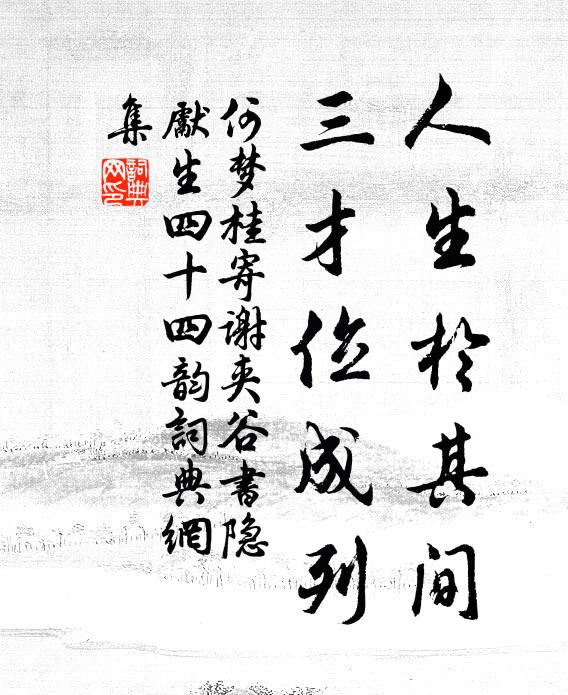 人生於其间
三才位成列
何梦桂寄谢夹谷书隐
献生四十四韵词典網
集
詞典
网印